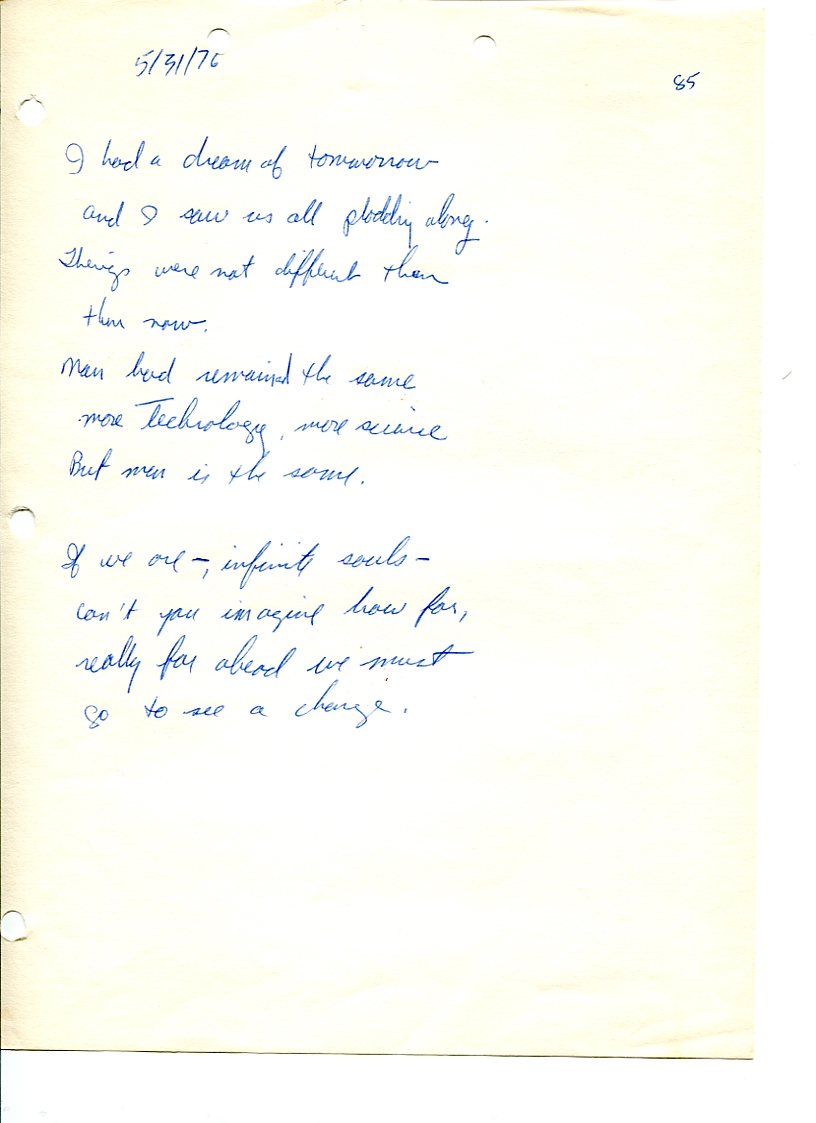 5/31/76
85
I had a dream of tomorrow
and I saw us all plodding along.
Things were not different then
then now.
Man had remained the same
more Technology, more science
But man is the same.
If we are -, infinite souls -
can't you imagine how far,
really far ahead we must
go to see a change.